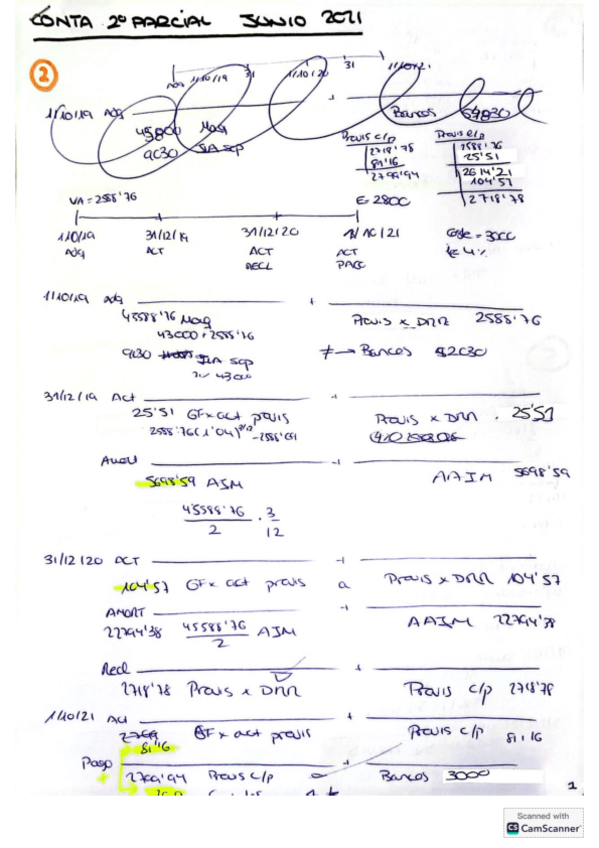 CONTA 2º PARCIAL JUNIO 2021
2
1/10/19 31 1/10/20 31 1/10/21
ADQ
1/10/19 ADQ + Bancos
45800 Maq
9030 IVA sop
Provis c/p
2718'78
81'16
2799'94
Provis l/p
2588'76
25'51
2614'21
104'57
2718'78
VA = 2588'76
E = 2800
1/10/19 31/12/19 31/12/20 1/10/21
ADQ ACT ACT ACT
RECL PAGO
Coste = 3000
ie 4%
1/10/19 adq +
45588'76 Maq Provis x DRR 2588'76
43000 + 2588'76
9030 IVA sop ≠ → Bancos 52030
21% 43000
31/12/19 Act +
25'51 GF x act provis Provis x DRR 25'51
2588'76(1'04)^3/12
Amort +
5698'59 AIM AAIM 5698'59
45588'76 / 2 · 3 / 12
31/12/20 ACT +
104'57 GF x act provis a Provis x DRR 104'57
AMORT +
22794'38 45588'76 / 2 AIM AAIM 22794'38
Recl +
2718'78 Provis x DRR Provis c/p 2718'78
1/10/21 Act +
81'16 GF x act provis Provis c/p 81'16
Pago +
2799'94 Provis c/p a Bancos 3000
1
Scanned with
CS CamScanner